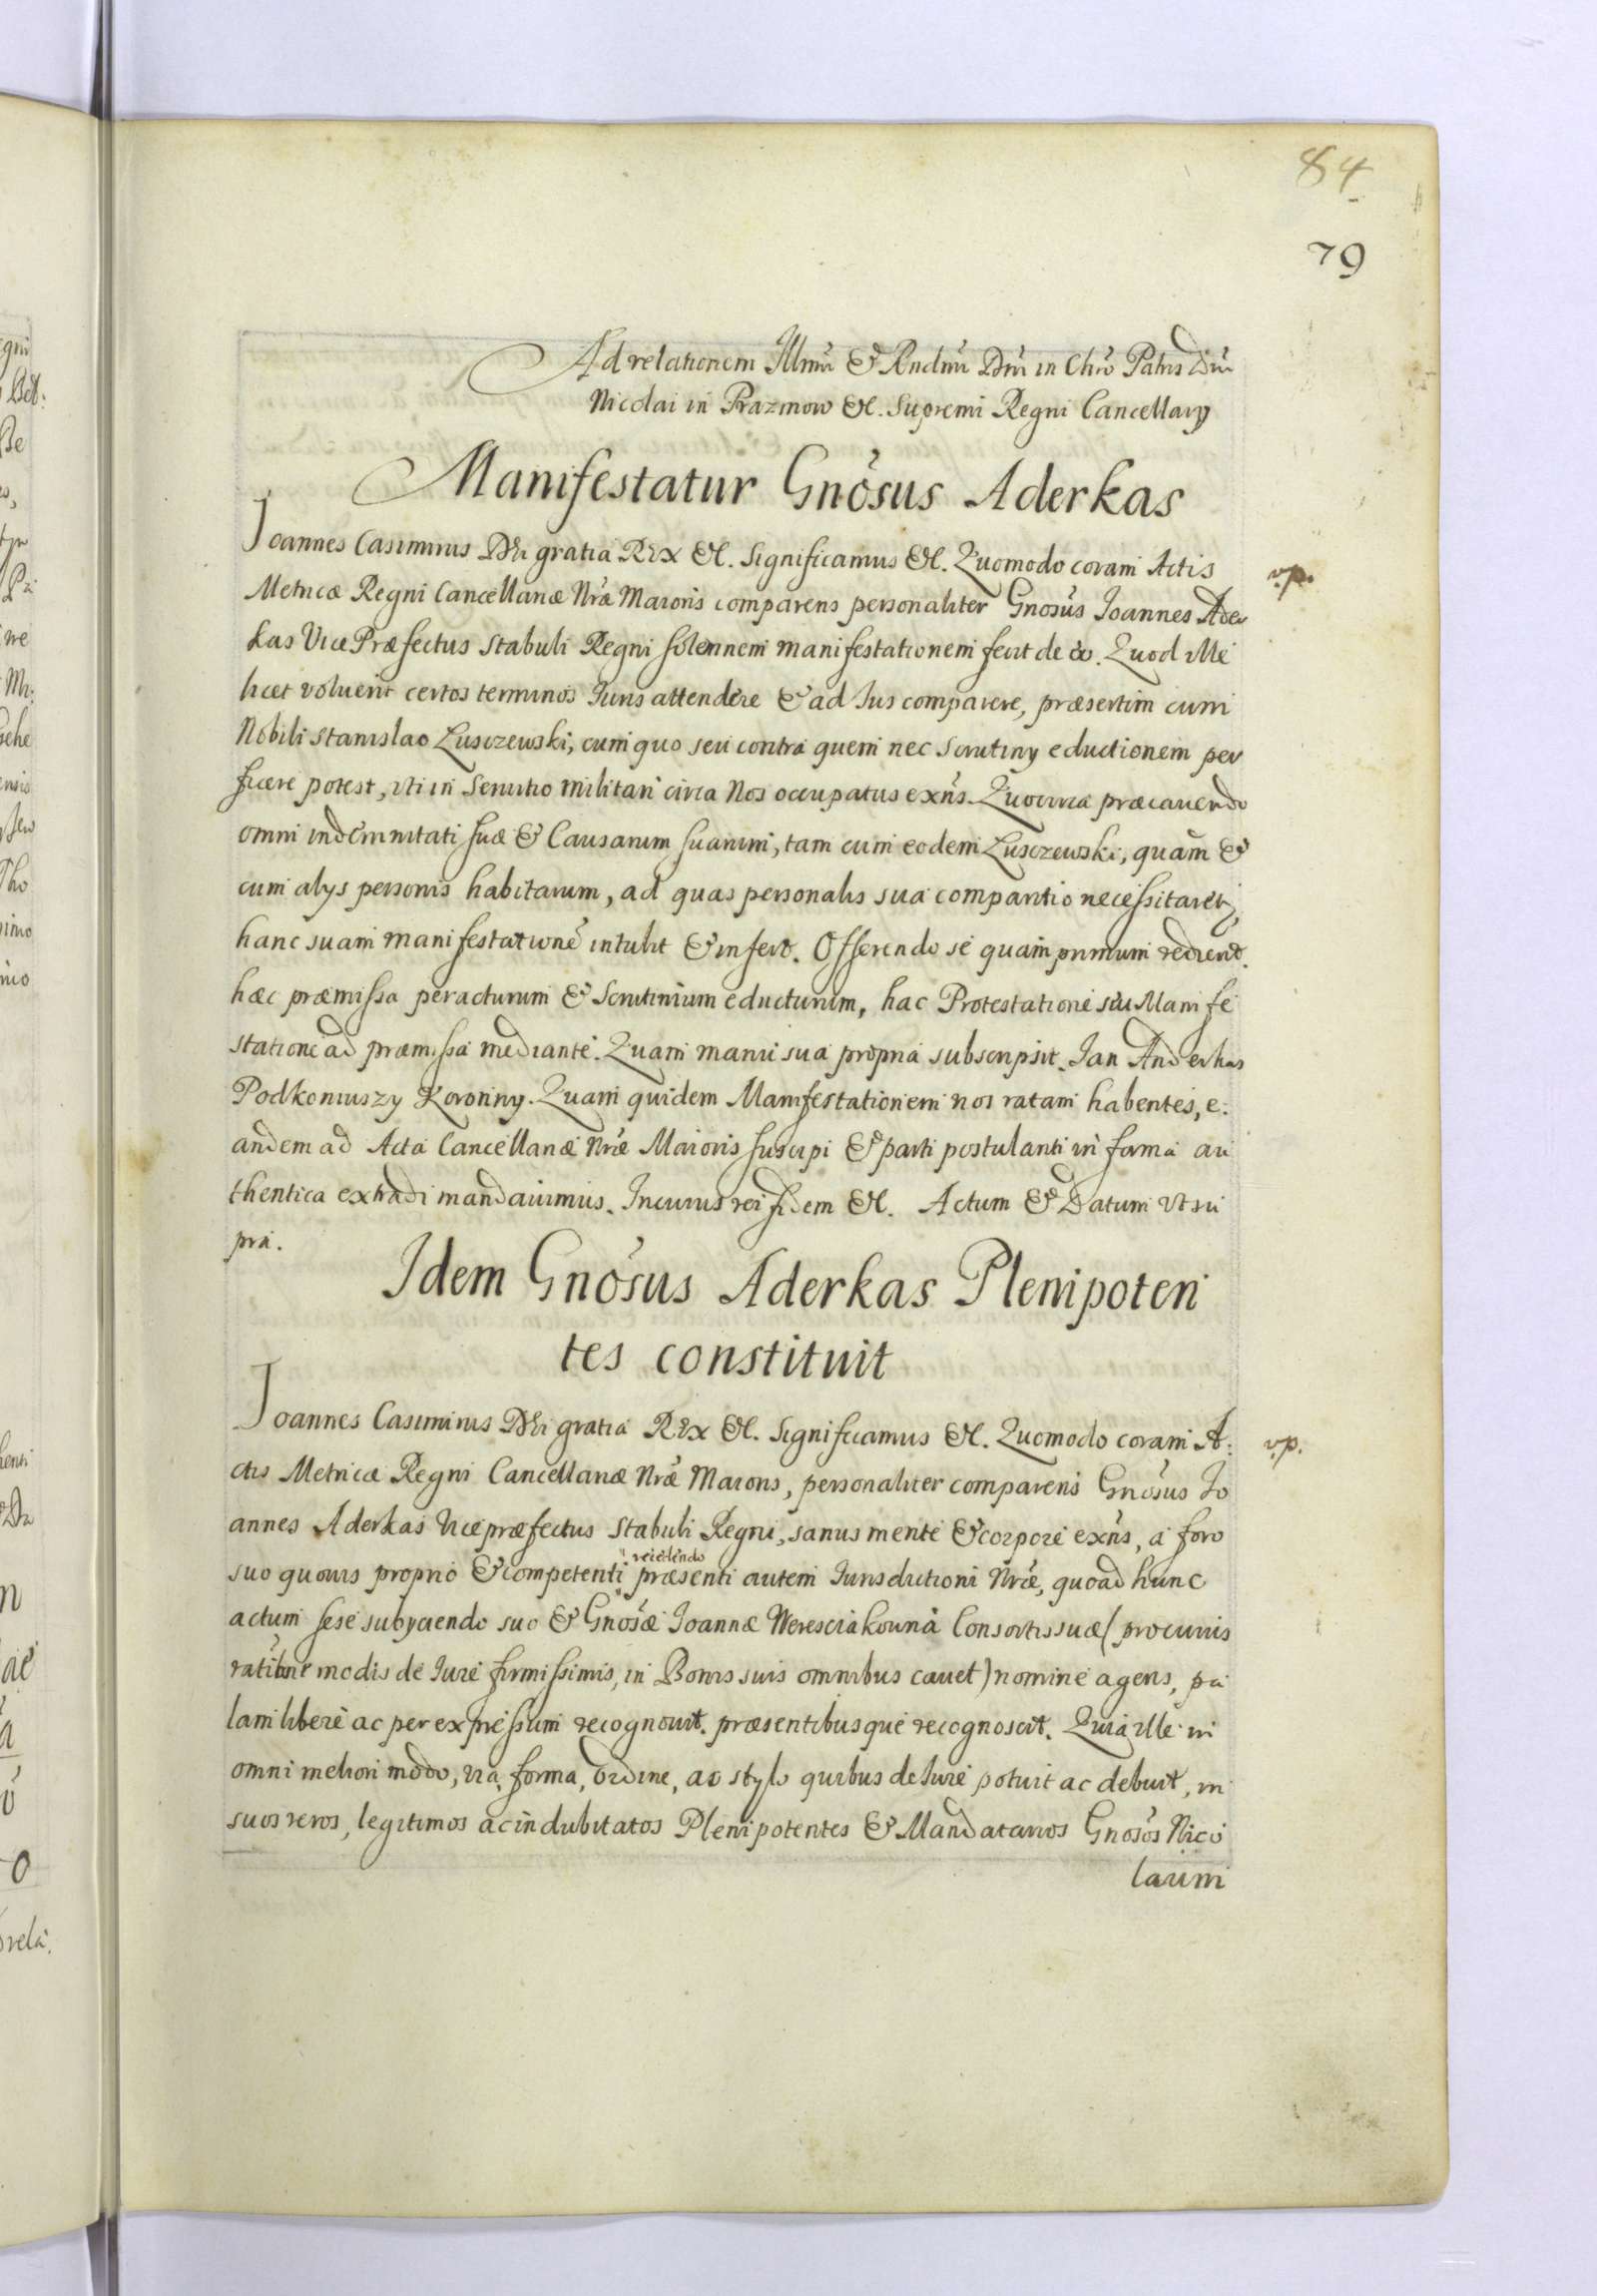 84
79
Ad relationem Illmi & Rndmi Dni in Chro Patris Dni
Nicolai in Prazmow &c. Supremi Regni Cancellarij
Manifestatur Gnosus Aderkas
Joannes Casimirus Dei gratia Rex &c. Significamus &c. Quomodo coram Actis
vp.
Metricæ Regni Cancellariæ Nræ Maioris comparens personaliter Gnosus Joannes Ader
kas Vice Præfectus Stabuli Regni solennem manifestationem fecit de eo. Quod ille
licet voluerit certos terminos Iuris attendere & ad Ius comparere, præsertim cum
Nobili Stanislao Lusczewski, cum quo seu contra quem nec Scrutiny eductionem per
ficere potest, uti in Servitio militari circa Nos occupatus exns. Quocirca præcavendo
omni indemnitati suæ & Causarum suarum, tam cum eodem Lusczewski, quam &
cum alys personis habitarum, ad quas personalis sua comparitio necessitaretr,
hanc suam manifestatione intulit & infert. Offerendo se quam primum redierit
hæc præmissa peracturum & Scrutinium educturum, hac Protestatione seu Manife
statione ad præmissa mediante. Quam manu sua propria subscripsit. Jan Anderkas
Podkoniuszy Koronny. Quam quidem Manifestationem nos ratam habentes, e:
andem ad Acta Cancellariæ Nræ Maioris suscipi & parti postulanti in forma au
thentica extradi mandavimus. In cuius rei fidem &c. Actum & Datum ut su
pra.
Idem Gnosus Aderkas Plenipoten
tes constituit
Joannes Casimirus Dei gratia Rex &c. Significamus &c. Quomodo coram A:
vp.
ctis Metricæ Regni Cancellariæ Nræ Maioris, personaliter comparens Gnosus Jo
annes Aderkas Vicepræfectus Stabuli Regni, sanus mente & corpore exns, a foro
suo quovis proprio & competenti recedendo præsenti autem Iurisdictioni Nræ, quoad hunc
actum sese subyciendo suo & Gnosæ Joannæ Weresciakowna Consortis suæ (pro cuius
ratihbne modis de Iure firmissimis, in Bonis suis omnibus cavet) nomine agens, pa
lam libere ac per expressum recognovit. præsentibusque recognoscit. Quia ille in
omni meliori modo, via, forma, ordine, ac stylo quibus de Iure potuit ac debuit, in
suos veros, legitimos ac indubitatos Plenipotentes & Mandatarios Gnosos Nico
laum